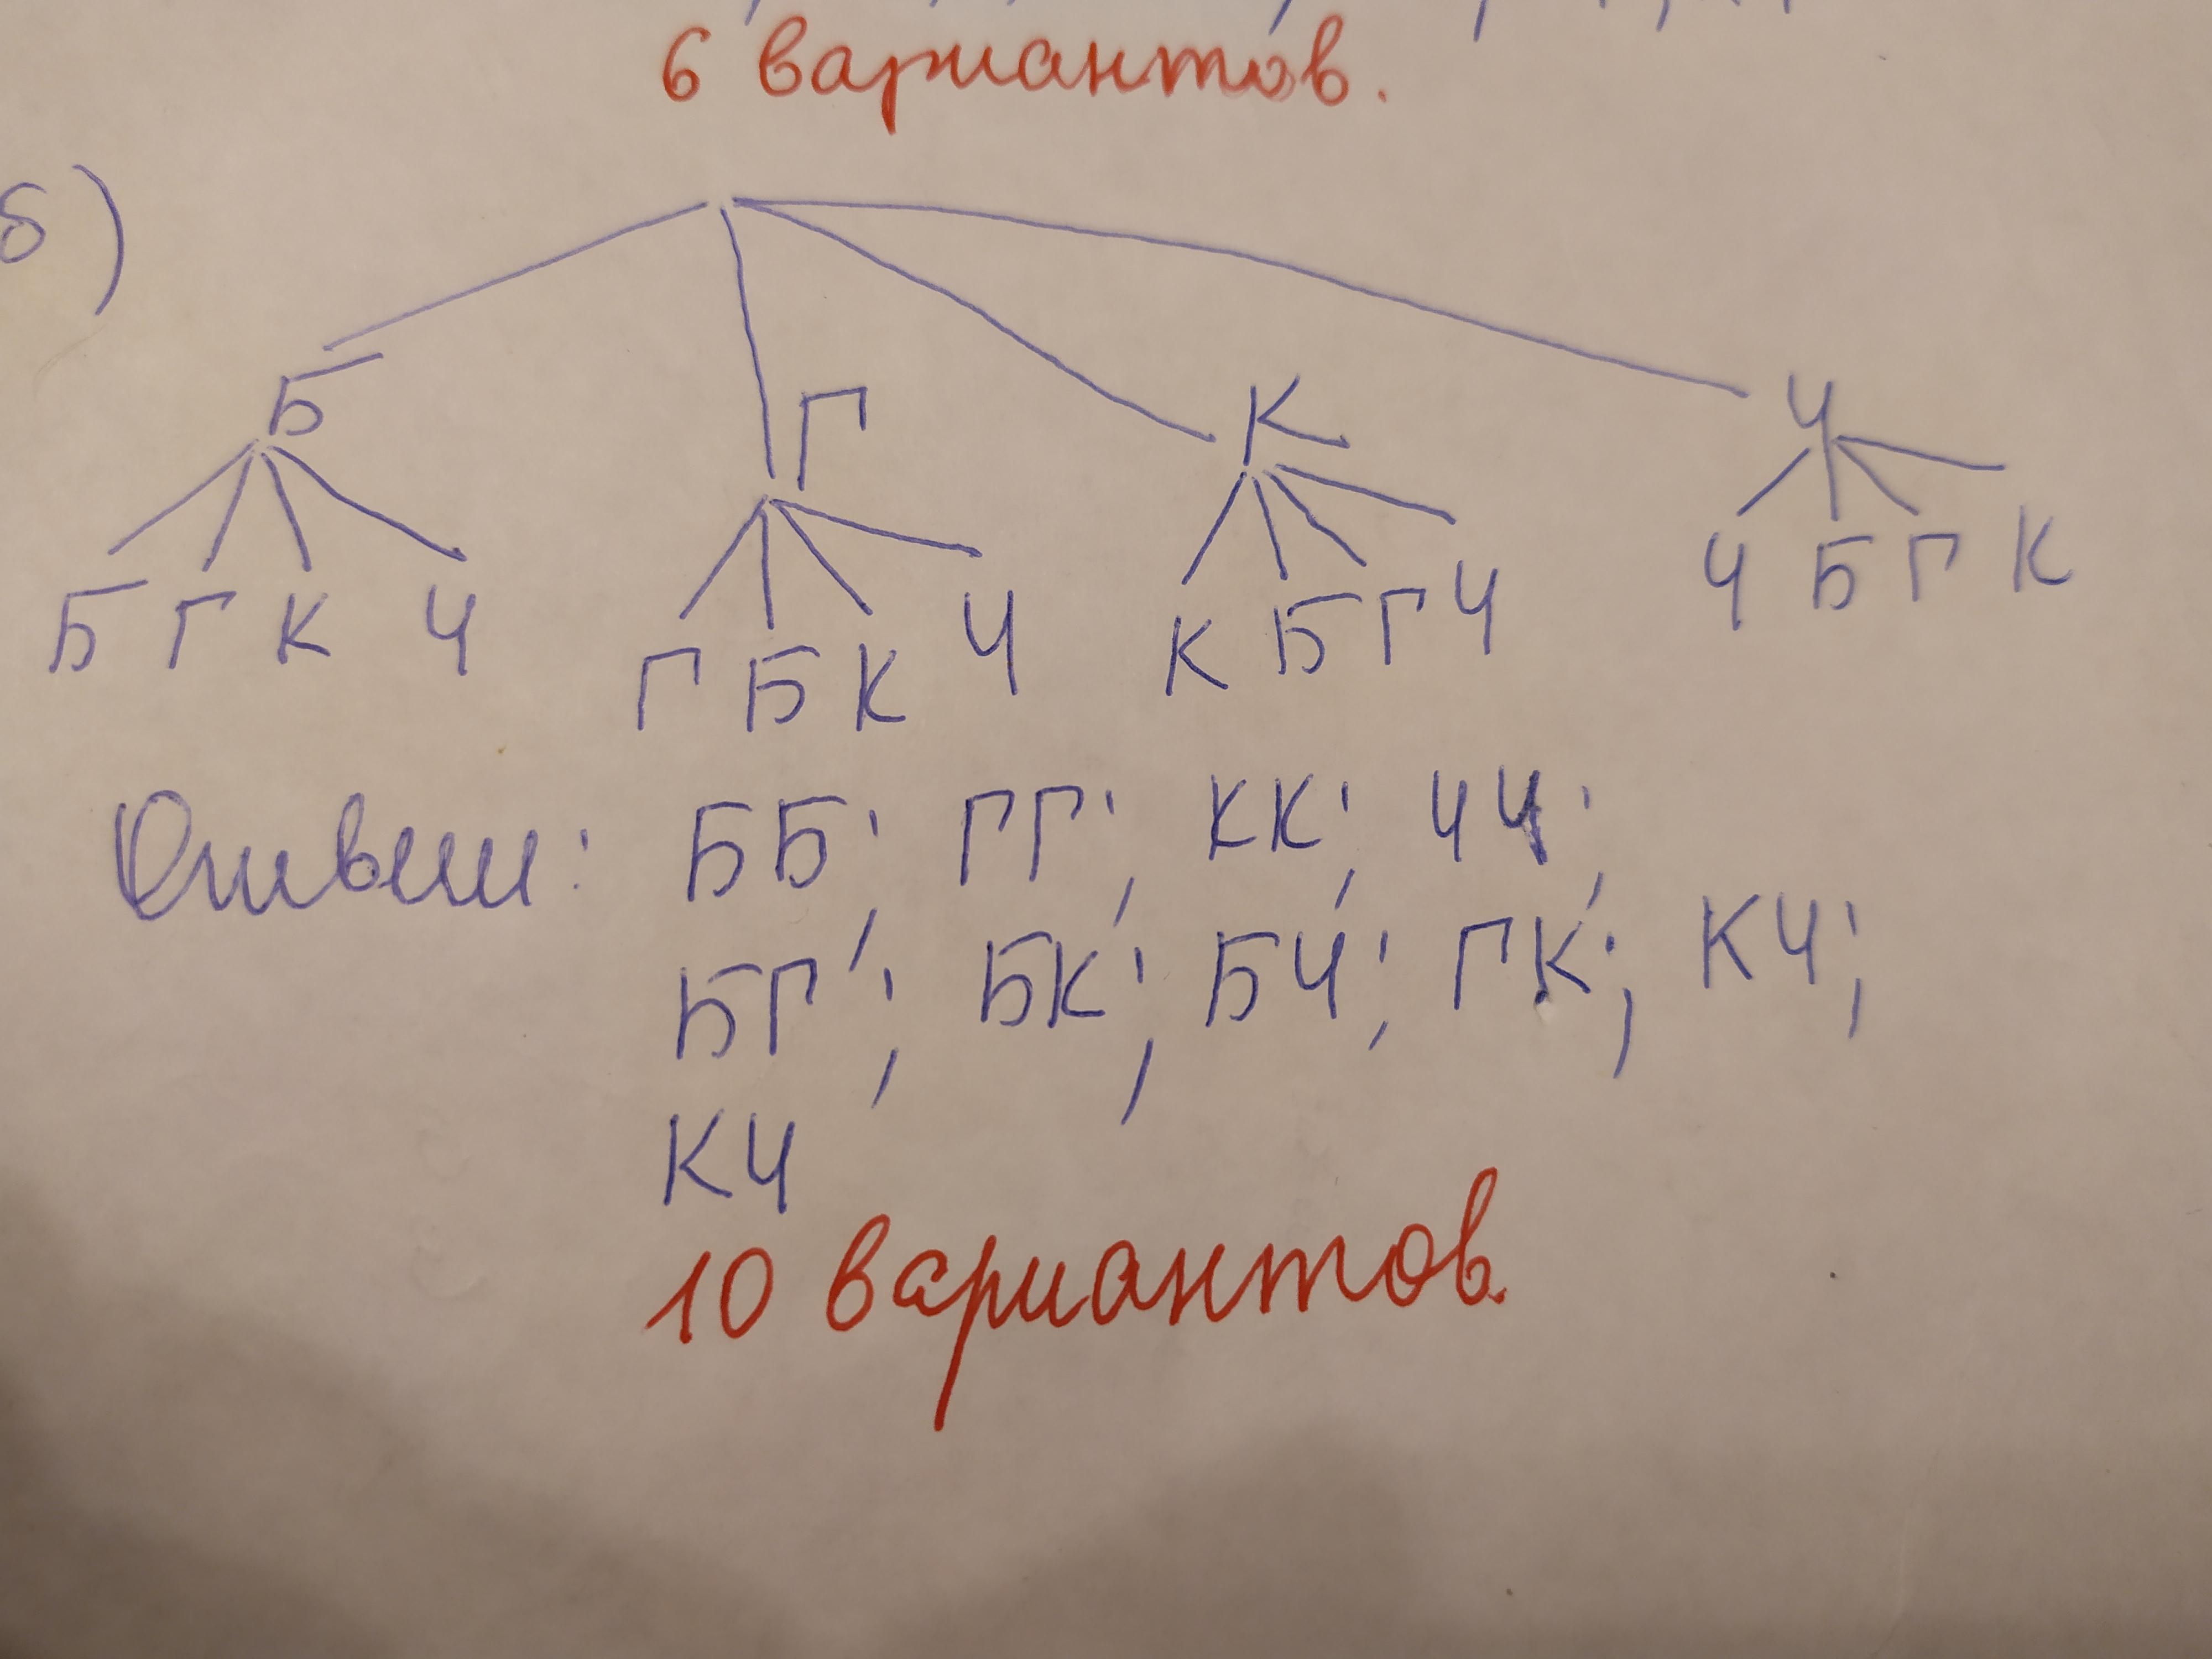 6 вариантов.
б)
Б Г К Ч
Б Г К Ч Г Б К Ч К Б Г Ч Ч Б Г К
Ответ: ББ; ГГ; КК; ЧЧ;
БГ; БК; БЧ; ГК; КЧ;
КЧ
10 вариантов.